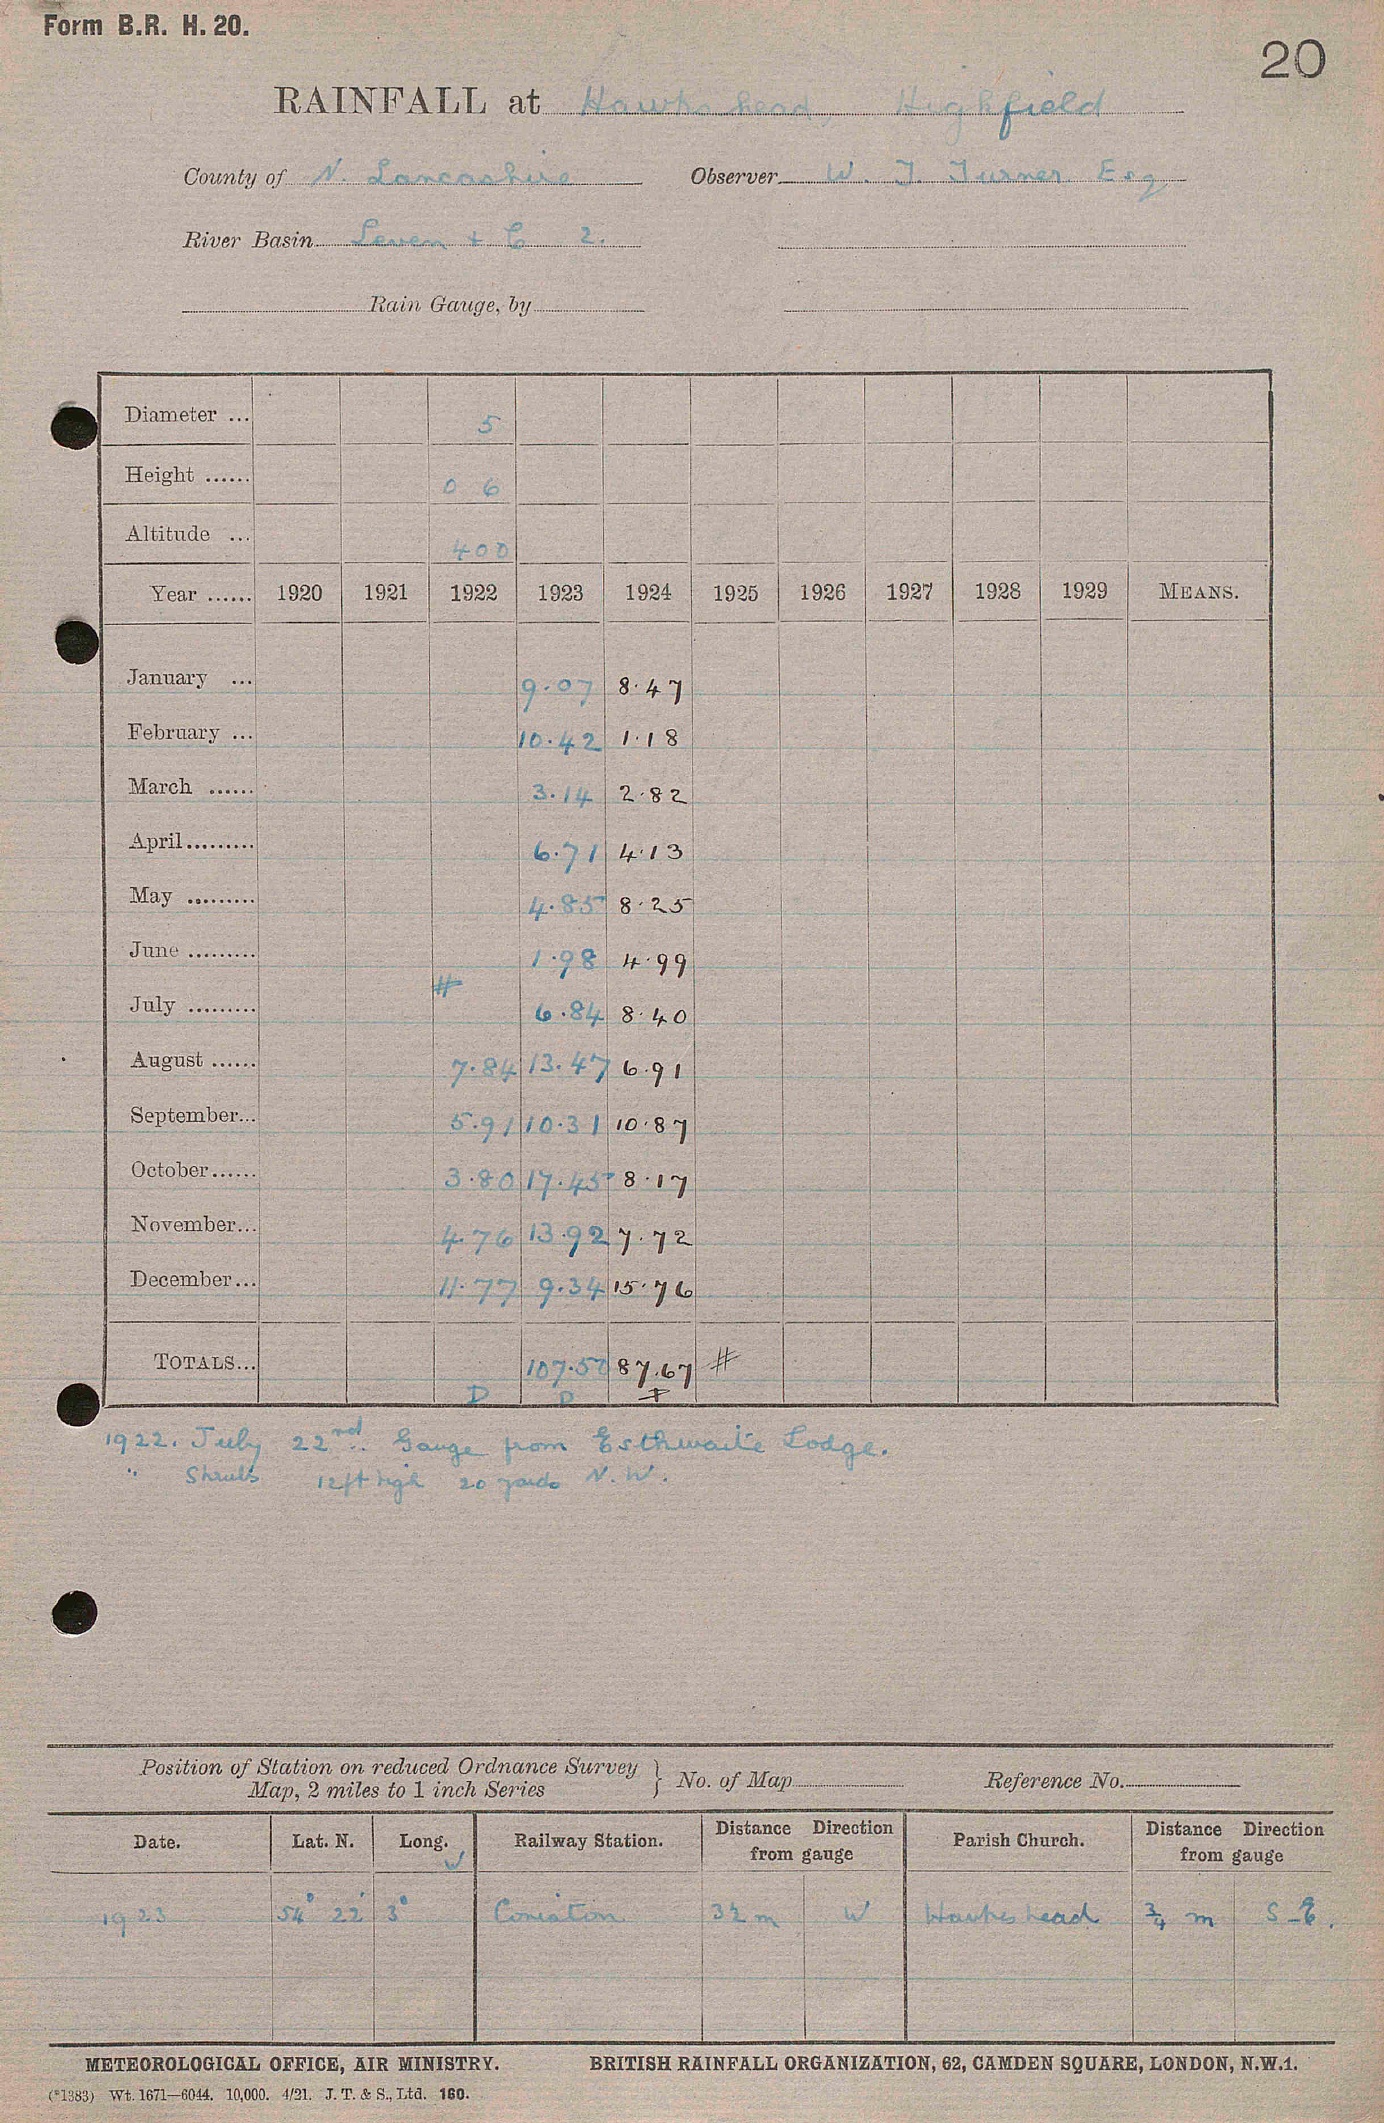 Form B.R. H. 20.
20
RAINFALL at Hawkshead, Highfield
County of N. Lancashire Observer W. J. Turner Esq
River Basin Leven & C 2.
Rain Gauge, by
Diameter ... 5
Height ...... 0 6
Altitude ... 400
Year ...... 1920 1921 1922 1923 1924 1925 1926 1927 1928 1929 MEANS.
January ... 9.07 8.47
February ... 10.42 1.18
March ...... 3.14 2.82
April ......... 6.71 4.13
May ......... 4.85 8.25
June ......... 1.98 4.99
#
July ......... 6.84 8.40
August ...... 7.84 13.47 6.91
September... 5.91 10.31 10.87
October...... 3.80 17.45 8.17
November... 4.76 13.92 7.72
December... 11.77 9.34 15.76
TOTALS... 107.50 87.67 #
D D
1922. July 22nd. Gauge from Esthwaite Lodge.
" Shrubs 12ft high 20 yards N.W.
Position of Station on reduced Ordnance Survey
Map, 2 miles to 1 inch Series } No. of Map Reference No.
Date. Lat. N. Long. W Railway Station. Distance Direction from gauge Parish Church. Distance Direction from gauge
1923 54° 22' 3° Coniston 3½ m W Hawkshead ¾ m S-E.
METEOROLOGICAL OFFICE, AIR MINISTRY. BRITISH RAINFALL ORGANIZATION, 62, CAMDEN SQUARE, LONDON, N.W.1.
(*1383) Wt. 1671—6044. 10,000. 4/21. J. T. & S., Ltd. 160.